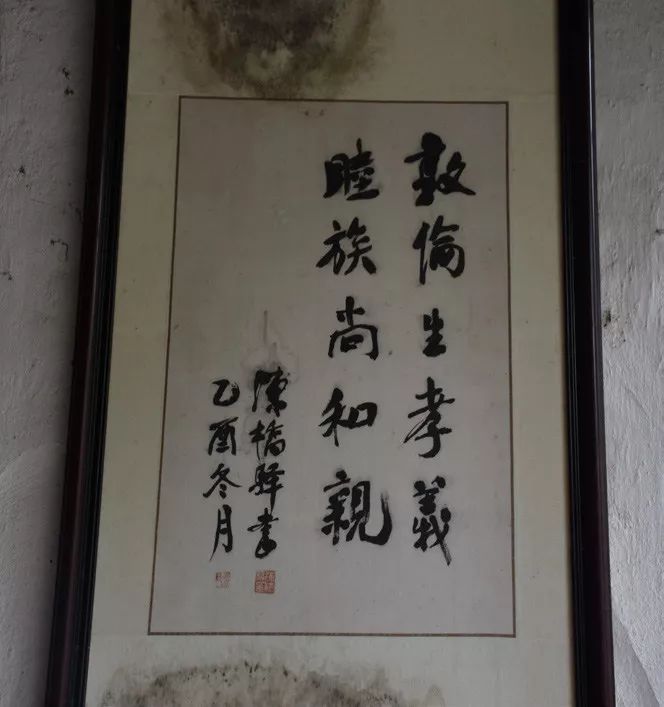 敦倫生孝義
睦族尚和親
陳橋驛書
乙酉冬月